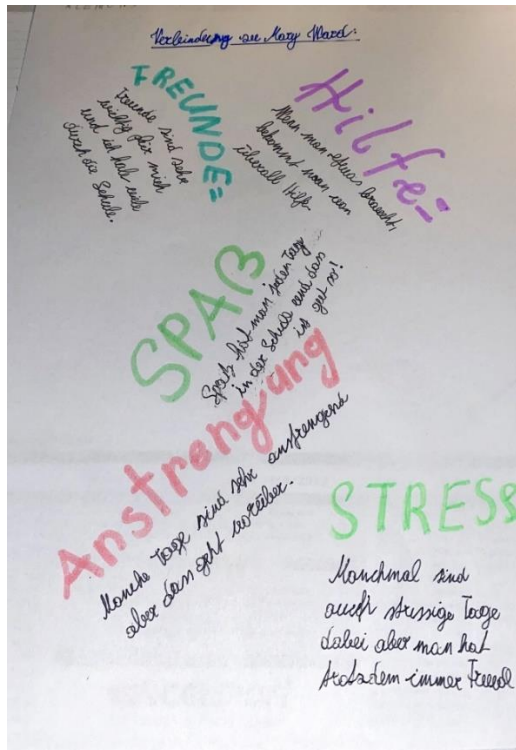 Verbindung zu Mary Ward:
FREUNDE=
Freunde sind sehr
wichtig für mich
und ich hab viele
durch die Schule.
Hilfe=
Wenn man etwas braucht,
bekommt man von
überall Hilfe.
SPAß
Spaß hat man jeden Tag
in der Schule und das
is gut so!
Anstrengung
Manche Tage sind sehr anstrengend
aber das geht vorüber.
STRESS
Manchmal sind
auch stressige Tage
dabei aber man hat
trotzdem immer